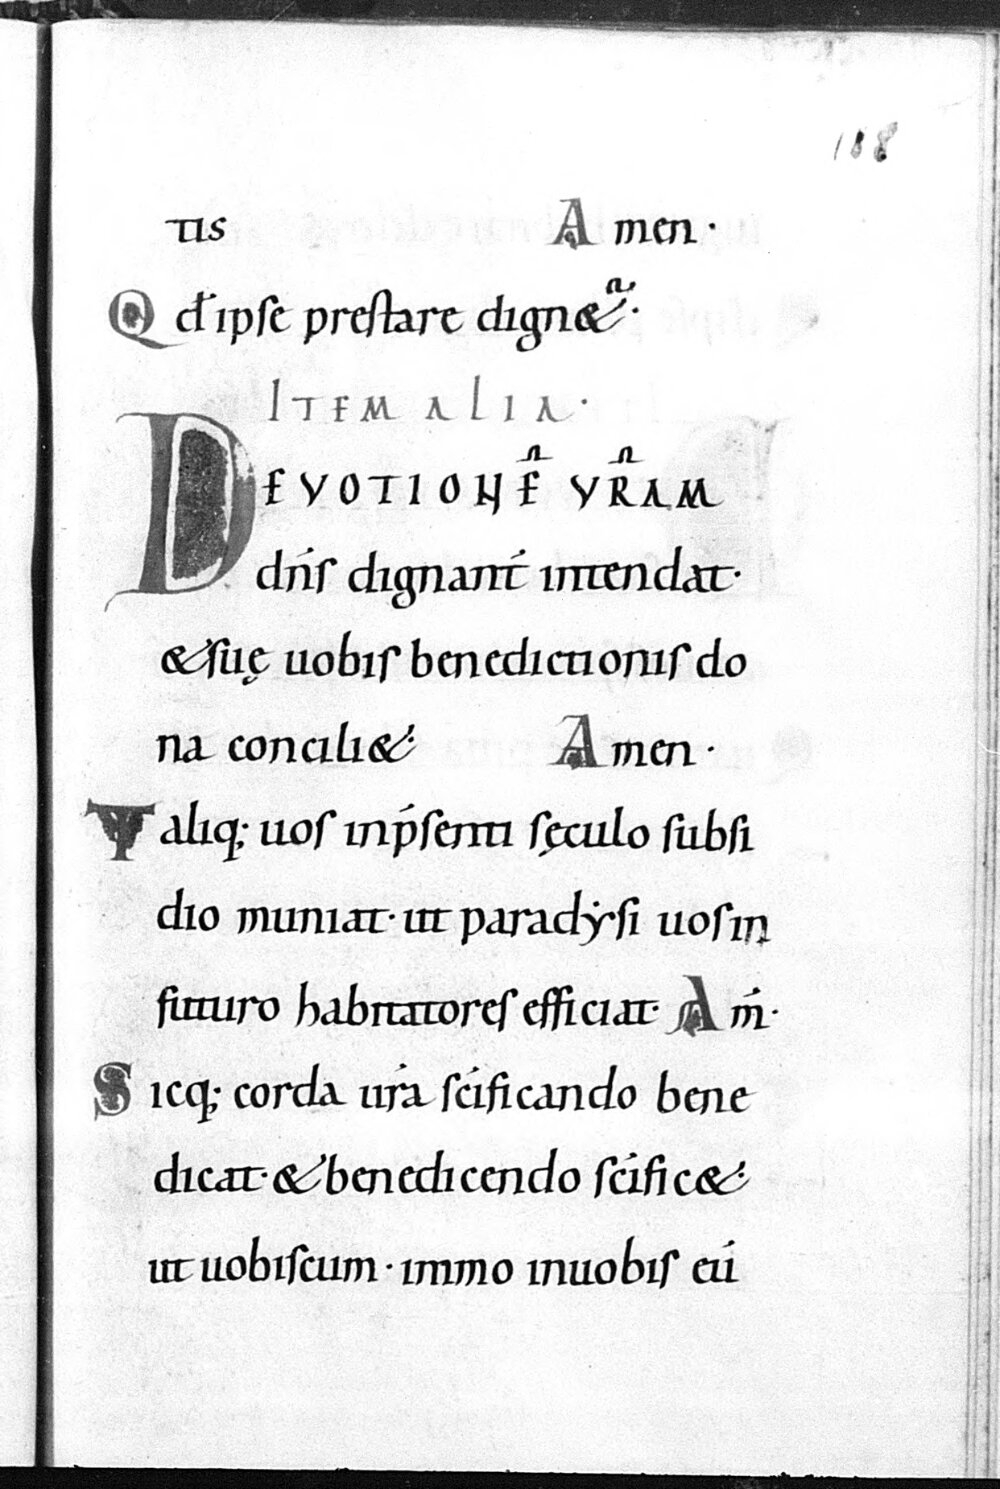 188
tis Amen·
Qđ ipse prestare dign&ur·
ITEM ALIA·
DEVOTIONĒ VR̄AM
dn̄s dignant̄ intendat·
& suę uobis benedictionis do
na concili&· Amen·
Taliq; uos inp̄senti sęculo subsi
dio muniat· ut paradẏsi uos in
futuro habitatores efficiat· Am̄·
Sicq; corda ur̄a sc̄ificando bene
dicat· & benedicendo sc̄ific&·
ut uobiscum· immo inuobis eū